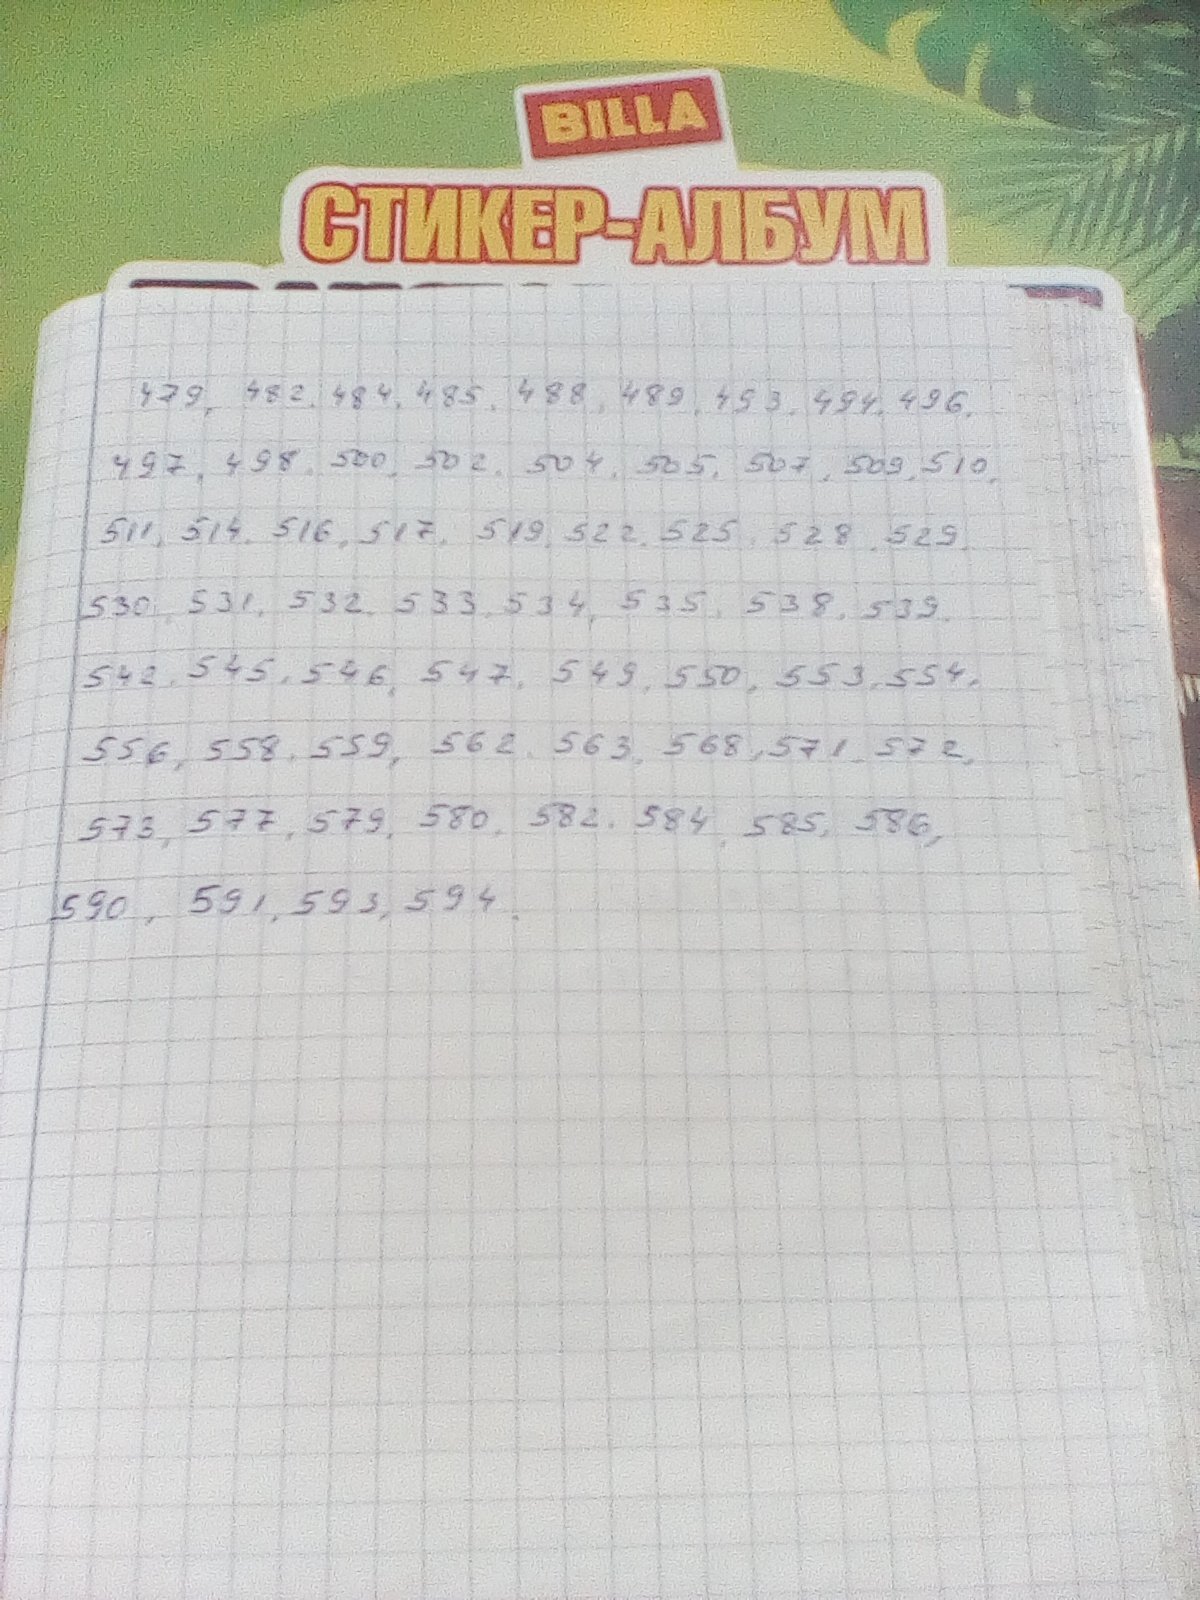 BILLA
СТИКЕР-АЛБУМ
479, 482, 484, 485, 488, 489, 493, 494, 496,
497, 498, 500, 502, 504, 505, 507, 509, 510,
511, 514, 516, 517, 519, 522, 525, 528, 529,
530, 531, 532, 533, 534, 535, 538, 539,
542, 545, 546, 547, 549, 550, 553, 554,
556, 558, 559, 562, 563, 568, 571, 572,
573, 577, 579, 580, 582, 584, 585, 586,
590, 591, 593, 594.